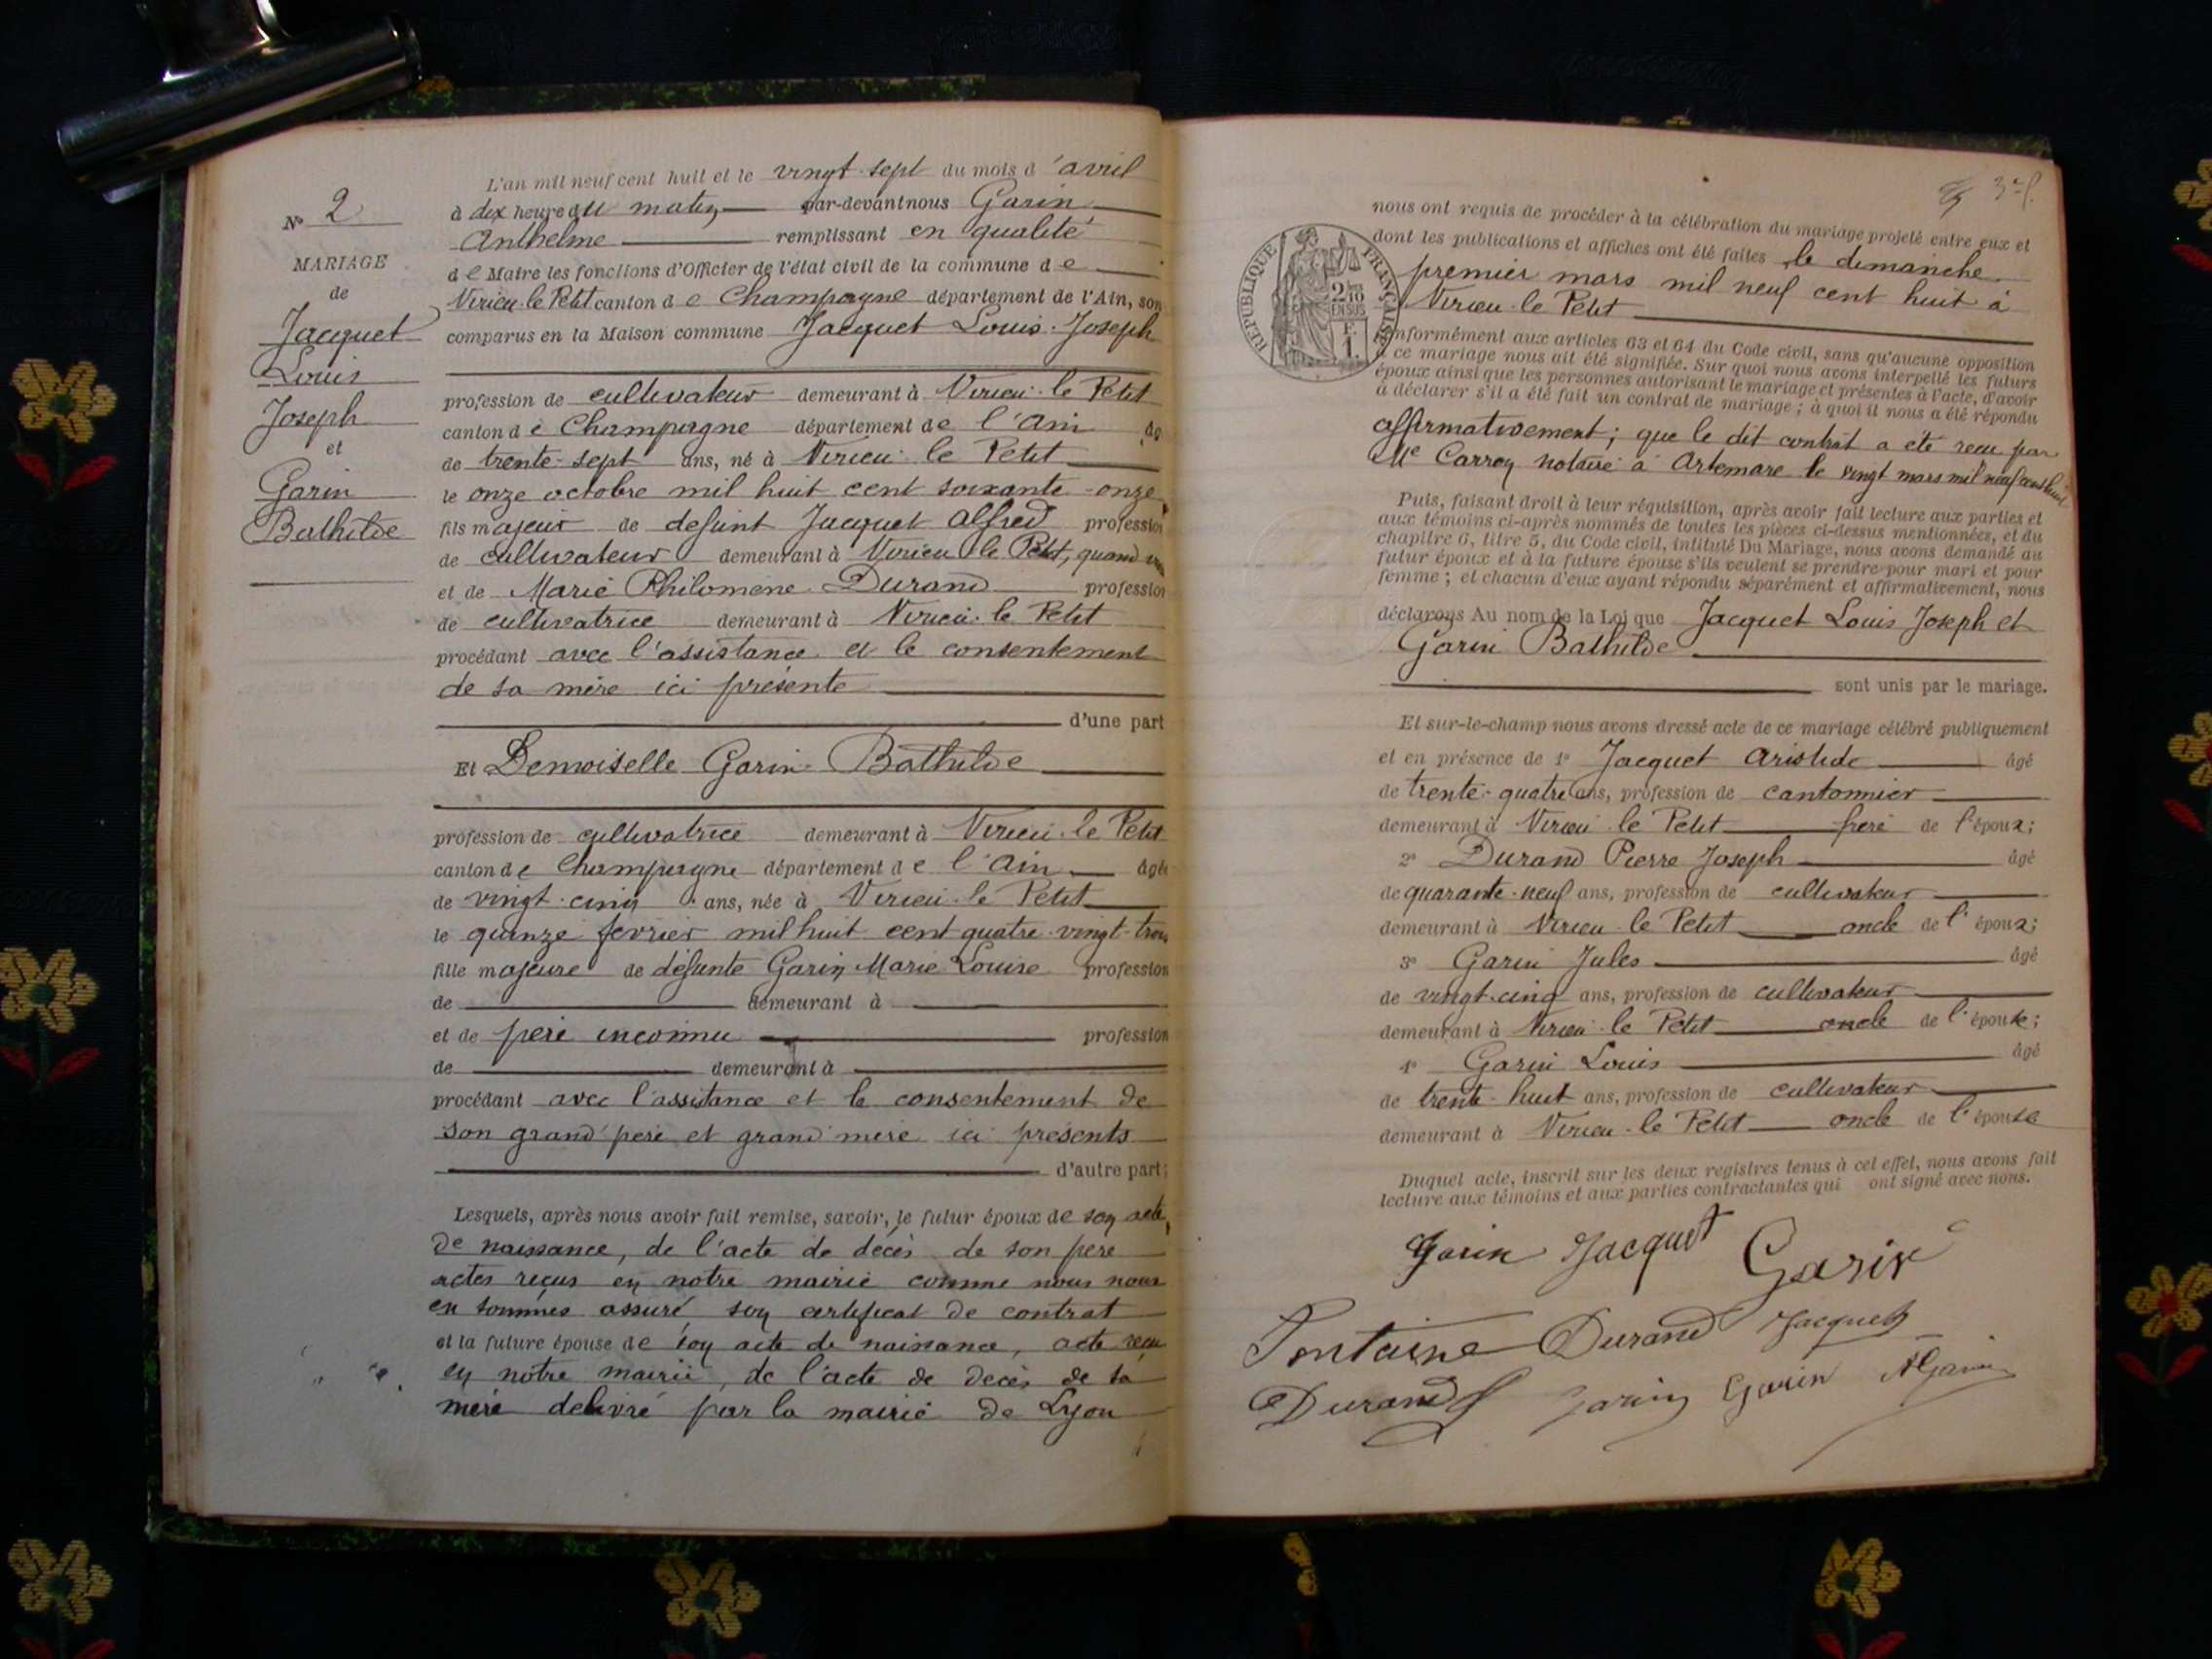 N° 2
MARIAGE
de
Jacquet
Louis
Joseph
et
Garin
Bathilde
L'an mil neuf cent huit et le vingt-sept du mois d'avril
à dix heure du matin par-devant nous Garin
Anthelme remplissant en qualité
de Maire les fonctions d'Officier de l'état civil de la commune de
Virieu-le-Petit canton de Champagne département de l'Ain, son
comparus en la Maison commune Jacquet Louis-Joseph
profession de cultivateur demeurant à Virieu-le-Petit
canton de Champagne département de l'Ain
de trente-sept ans, né à Virieu-le-Petit
le onze octobre mil huit cent soixante-onze
fils majeur de defunt Jacquet Alfred profession
de cultivateur demeurant à Virieu-le-Petit, quand
et de Marie Philomène Durand profession
de cultivatrice demeurant à Virieu-le-Petit
procédant avec l'assistance et le consentement
de sa mère ici présente
d'une part
Et Demoiselle Garin Bathilde
profession de cultivatrice demeurant à Virieu-le-Petit
canton de Champagne département de l'Ain âgée
de vingt-cinq ans, née à Virieu-le-Petit
le quinze fevrier mil huit cent quatre-vingt-trois
fille majeure de défunte Garin Marie Louise profession
de demeurant à
et de père inconnu profession
de demeurant à
procédant avec l'assistance et le consentement de
son grand'père et grand'mère ici présents
d'autre part;
Lesquels, après nous avoir fait remise, savoir, le futur époux de son acte
de naissance, de l'acte de décès de son père
actes reçus en notre mairie comme nous nous
en sommes assuré, son certificat de contrat
et la future épouse de son acte de naissance, acte reçu
en notre mairie, de l'acte de décès de sa
mère delivré par la mairie de Lyon
REPUBLIQUE FRANÇAISE
2/10 EN SUS
F. 1.
nous ont requis de procéder à la célébration du mariage projeté entre eux et
dont les publications et affiches ont été faites le dimanche
premier mars mil neuf cent huit à
Virieu-le-Petit
conformément aux articles 63 et 64 du Code civil, sans qu'aucune opposition
à ce mariage nous ait été signifiée. Sur quoi nous avons interpellé les futurs
époux ainsi que les personnes autorisant le mariage et présentes à l'acte, d'avoir
à déclarer s'il a été fait un contrat de mariage; à quoi il nous a été répondu
affirmativement; que le dit contrat a été recu par
Me Carrey notaire à Artemare le vingt mars mil neuf cent huit
Puis, faisant droit à leur réquisition, après avoir fait lecture aux parties et
aux témoins ci-après nommés de toutes les pièces ci-dessus mentionnées, et du
chapitre 6, titre 5, du Code civil, intitulé Du Mariage, nous avons demandé au
futur époux et à la future épouse s'ils veulent se prendre pour mari et pour
femme; et chacun d'eux ayant répondu séparément et affirmativement, nous
déclarons Au nom de la Loi que Jacquet Louis Joseph et
Garin Bathilde
sont unis par le mariage.
Et sur-le-champ nous avons dressé acte de ce mariage célébré publiquement
et en présence de 1° Jacquet Aristide âgé
de trente-quatre ans, profession de cantonnier
demeurant à Virieu-le-Petit frère de l'époux;
2° Durand Pierre Joseph âgé
de quarante-neuf ans, profession de cultivateur
demeurant à Virieu-le-Petit oncle de l'époux;
3° Garin Jules âgé
de vingt-cinq ans, profession de cultivateur
demeurant à Virieu-le-Petit oncle de l'épouse;
4° Garin Louis âgé
de trente-huit ans, profession de cultivateur
demeurant à Virieu-le-Petit oncle de l'épouse
Duquel acte, inscrit sur les deux registres tenus à cet effet, nous avons fait
lecture aux témoins et aux parties contractantes qui ont signé avec nous.
Garin Jacquet Garin
Fontaine Durand Jacquet
Durand Garin Garin AGarin